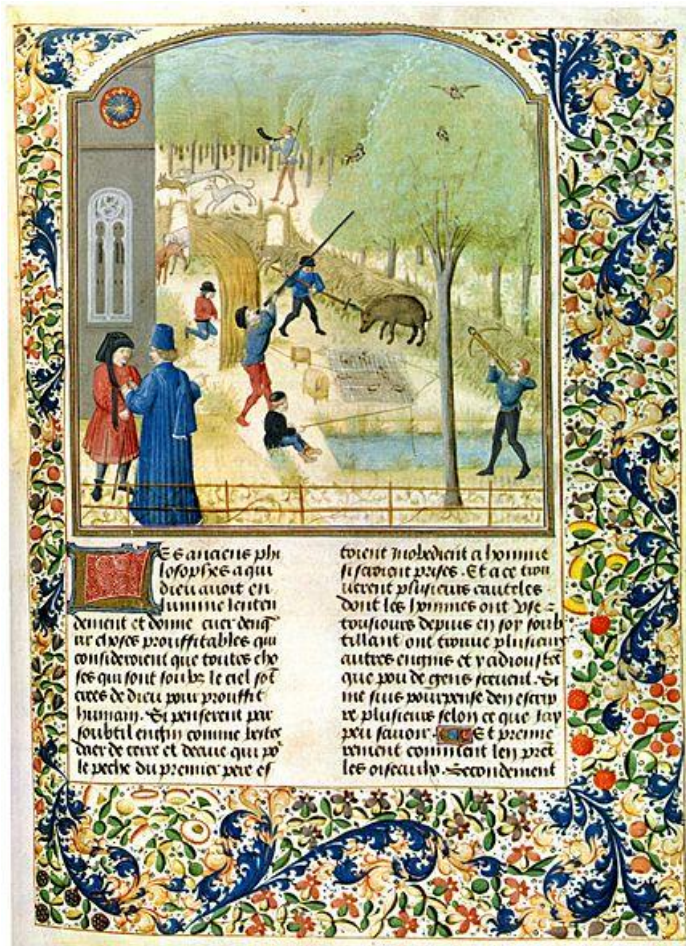 Es anciens phi
losophes a qui
dieu auoit en
lumine lenten
dement et donne cuer denq
rir choses prouffitables qui
consideroient que toutes cho
ses qui sont soubz le ciel sōt
crees de dieu pour prouffit
humain. Si penserent par
soubtil engin comme bestes
de terre et deaue qui po
le peche du premier pere es
toient inobedient a homme
si seroient prises. Et a ce trou
uerent plusieurs cauteles
dont les hommes ont vse
tousiours depuis en soy soub
tillant ont trouue plusieurs
autres engins et y adiouste
que pou de gens sceuent. Si
me suis pourpense den escrip
re plusieurs selon ce que iay
peu sauoir. Et premie
rement comment len prēt
les oiseaulx. Secondement